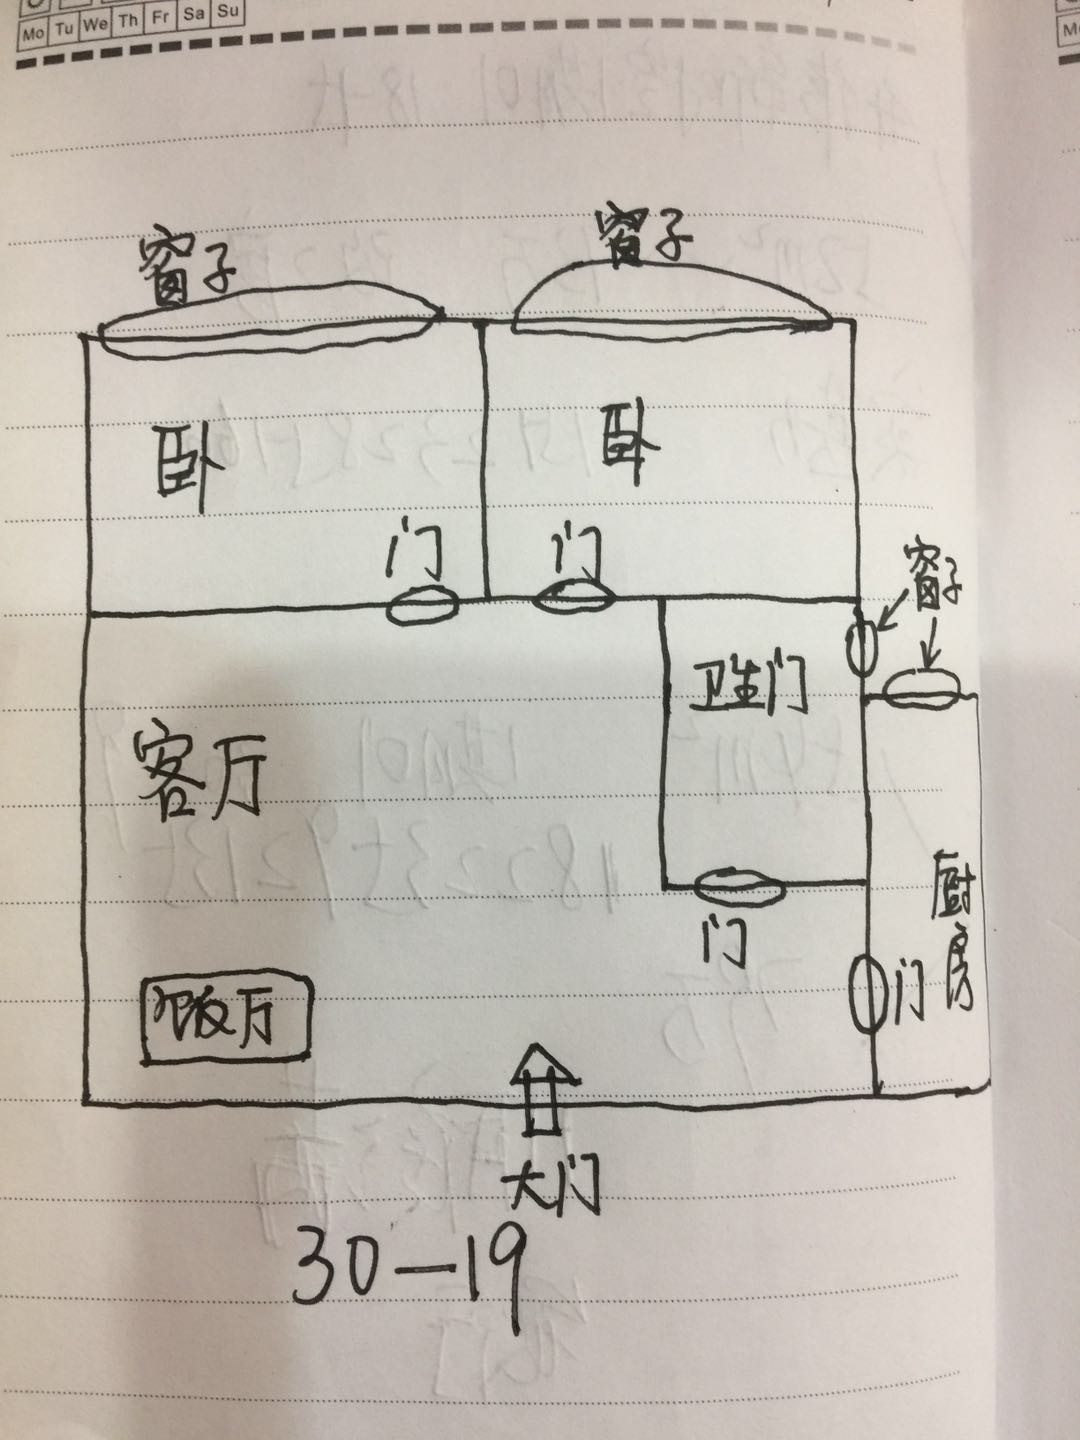 Mo Tu We Th Fr Sa Su
窗子
窗子
卧
卧
门
门
窗子
卫生门
客厅
厨房
门
门
饭厅
大门
30-19